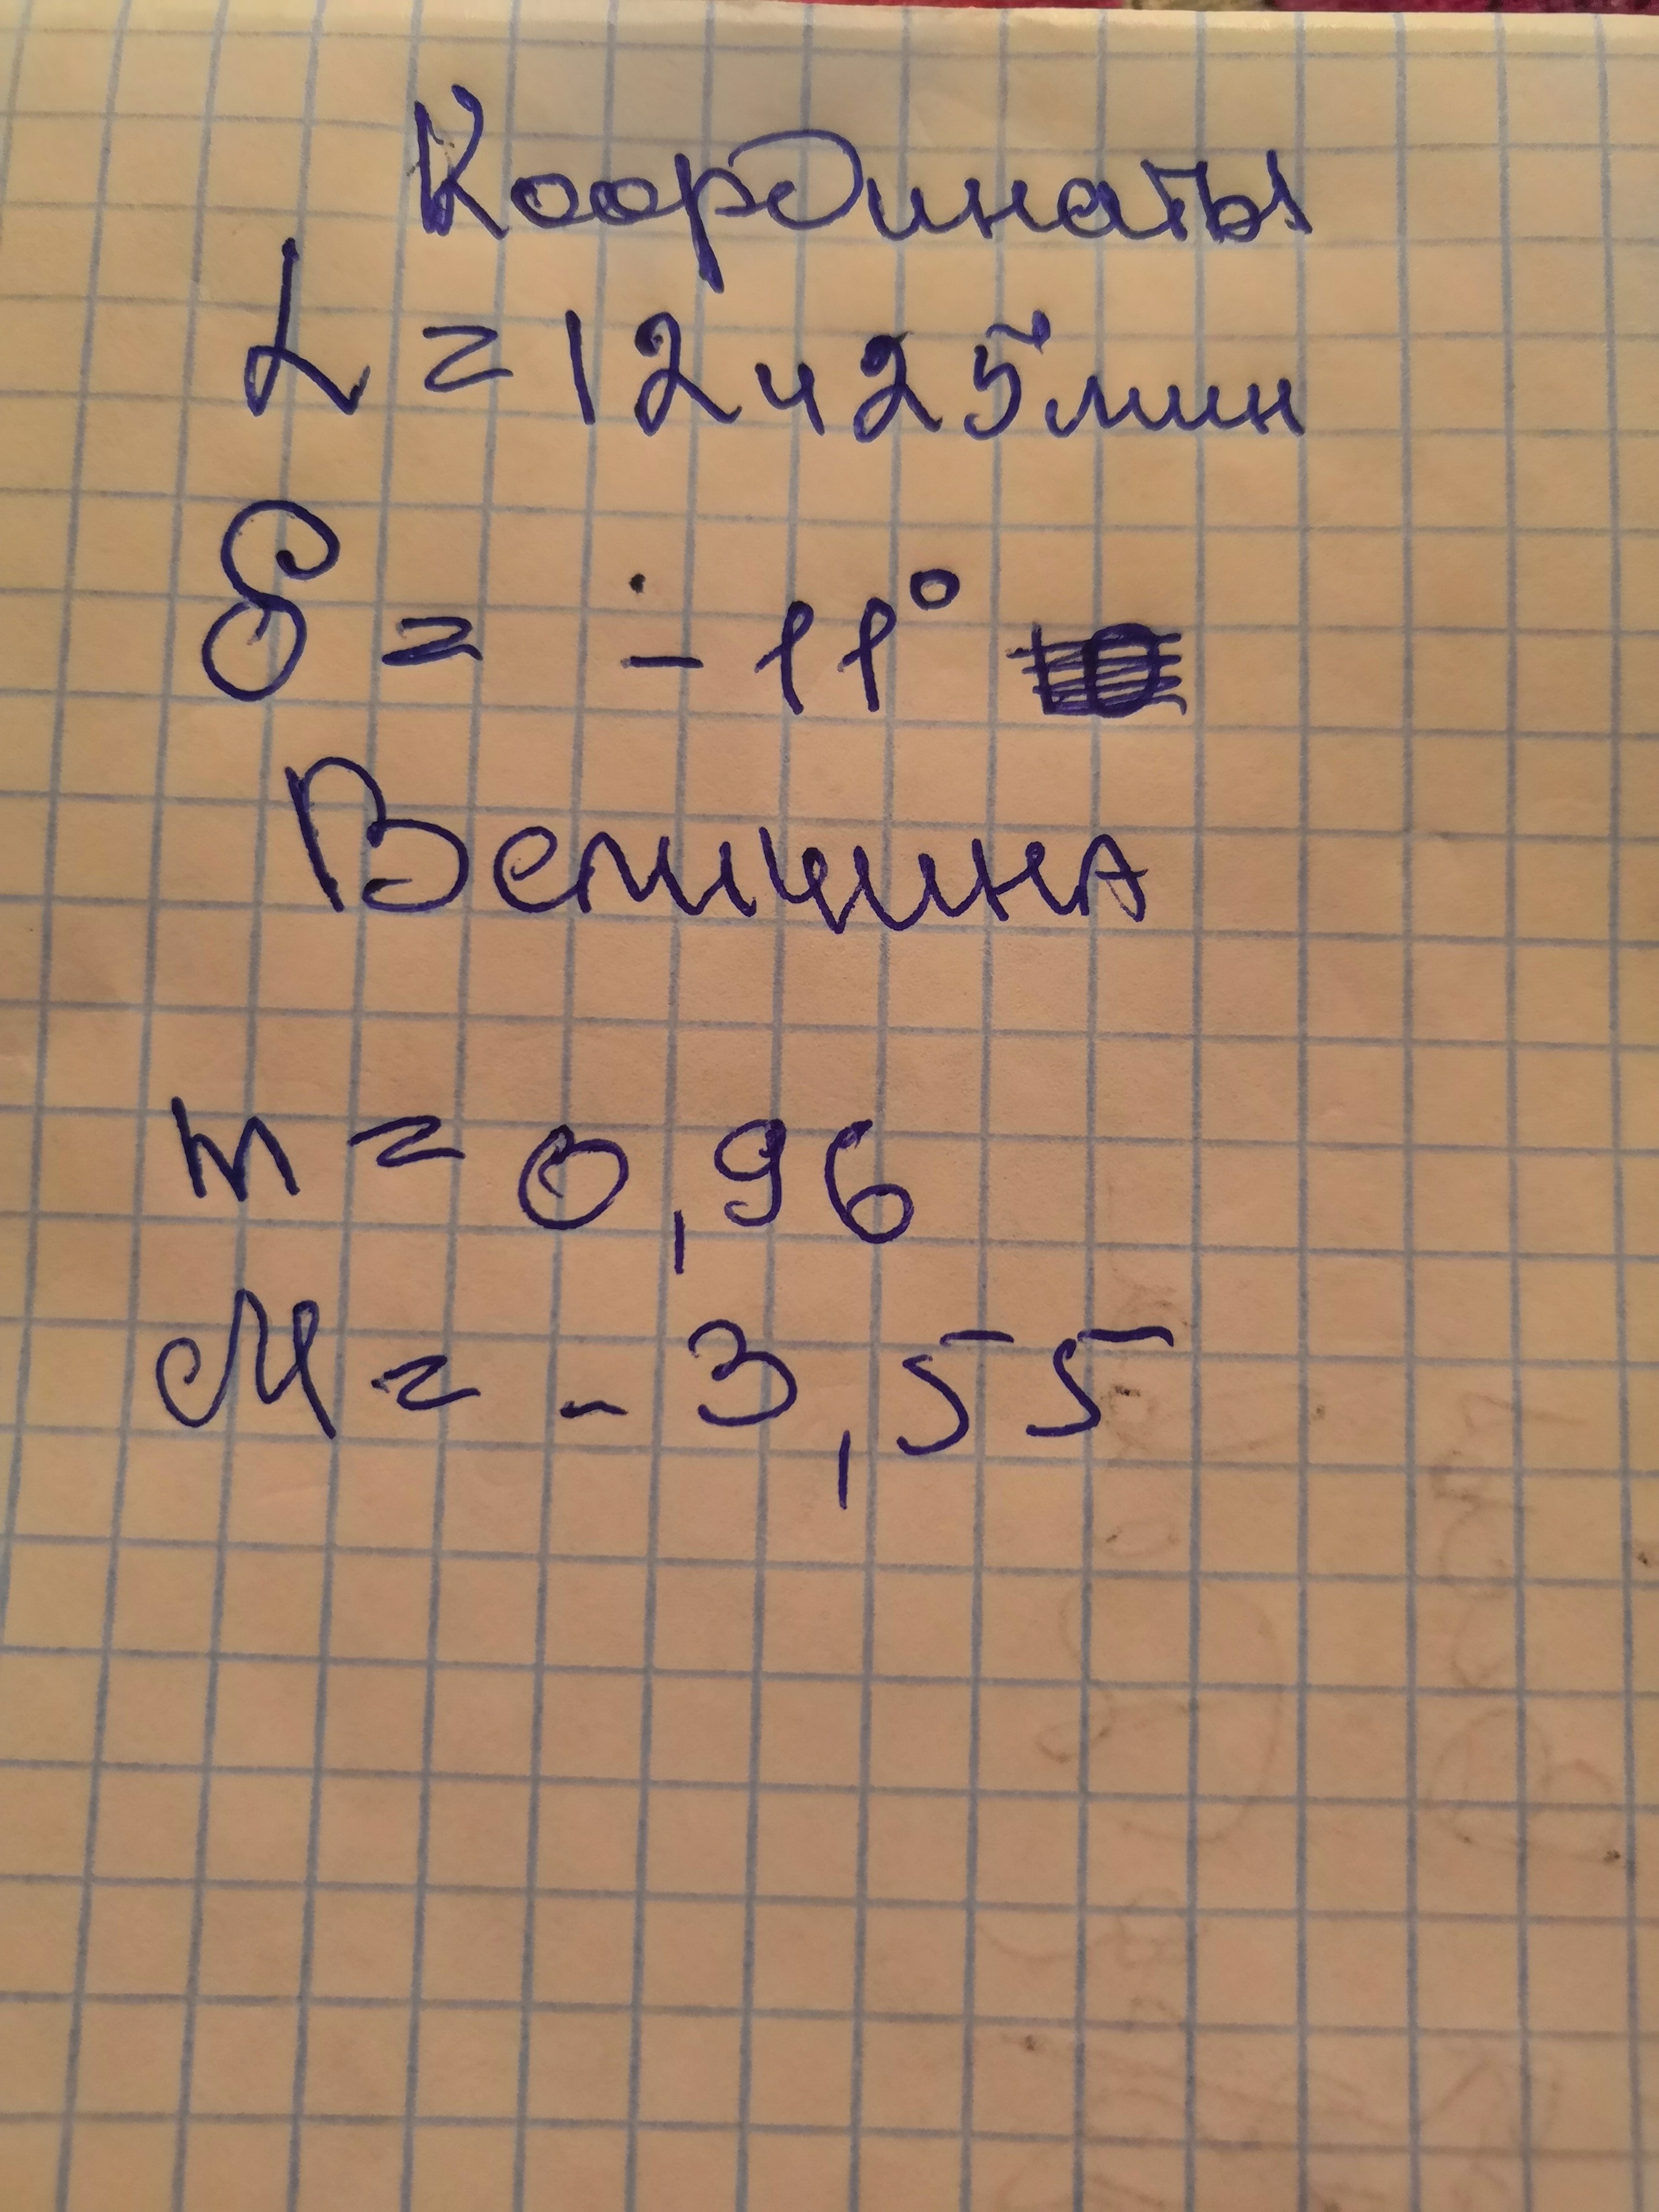 Координаты
α = 12ч25мин
δ = -11°
Величина
m = 0,96
M = -3,55